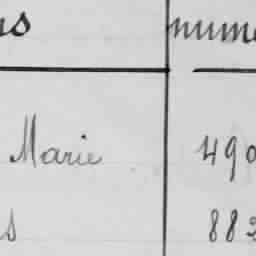 ns nume
Marie 490
s 882